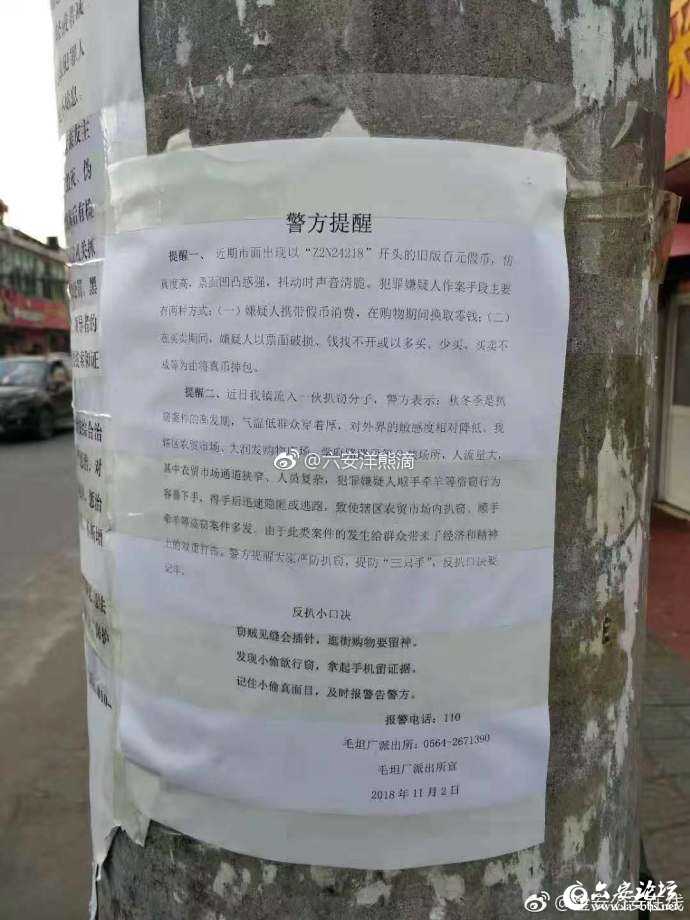 警方提醒
提醒一、近期市面出现以“Z2N24218”开头的旧版百元假币，仿
真度高，票面凹凸感强，抖动时声音清脆。犯罪嫌疑人作案手段主要
有两种方式：（一）嫌疑人携带假币消费，在购物期间换取零钱；（二）
在买卖期间，嫌疑人以票面破损、钱找不开或以多买、少买、买卖不
成等为由将真币掉包。
提醒二、近日我镇流入一伙扒窃分子，警方表示：秋冬季是扒
窃案件的高发期，气温低群众穿着厚，对外界的敏感度相对降低。我
辖区农贸市场、大润发购物广场、场所，人流量大，
其中农贸市场通道狭窄，人员复杂，犯罪嫌疑人顺手牵羊等盗窃行为
容易下手，得手后迅速隐匿或逃跑，致使辖区农贸市场内扒窃、顺手
牵羊等盗窃案件多发。由于此类案件的发生给群众带来了经济和精神
上的双重打击。警方提醒大家严防扒窃，提防“三只手”，反扒口决要
记牢。
反扒小口决
窃贼见缝会插针，逛街购物要留神。
发现小偷欲行窃，拿起手机留证据。
记住小偷真面目，及时报警告警方。
报警电话：110
毛坦厂派出所：0564-2671390
毛坦厂派出所宣
2018年11月2日
@六安洋熊滴
六安论坛